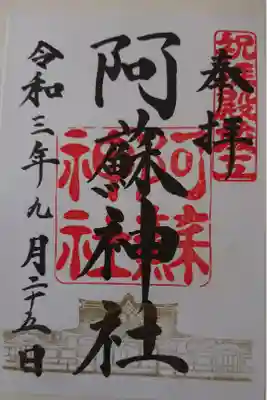 奉拝
祝拝殿竣工
阿蘇神社
阿蘇
神社
令和三年九月二十五日